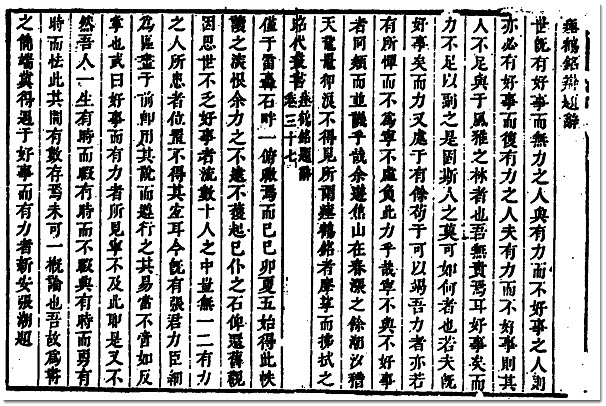 瘞鶴銘辯題辭
世旣有好事而無力之人與有力而不好事之人則
亦必有好事而復有力之人夫有力而不好事則其
人不足與于風雅之林者也吾無責焉耳好事矣而
力不足以副之是固斯人之莫可如何者也若夫旣
好事矣而力又處于有餘苟于可以竭吾力者亦若
有所憚而不爲寧不虛負此力乎哉寧不與不好事
者同類而並譏乎哉余遊焦山在春漲之餘潮汐稽
天不得見所謂瘞鶴銘者摩挲而拂拭之
昭代叢書 卷三十七 瘞鶴銘題辭
僅于雷轟石畔一俯瞰焉而已己卯夏五始得此帙
讀之深恨余力之不逮不獲起已仆之石俾還舊觀
因思世不乏好事者流數十人之中豈無一二有力
之人所患者位置不得其宜耳今旣有張君力臣
爲區畫于前卽用其說而遵行之其易當不啻如反
掌也或曰好事而有力者所見寧不及此是又不
然吾人一生有時而暇有時而不暇與有時而勇有
時而怯此其間有數存焉未可一概論也吾故爲
之冀得遇于好事而有力者新安張潮題